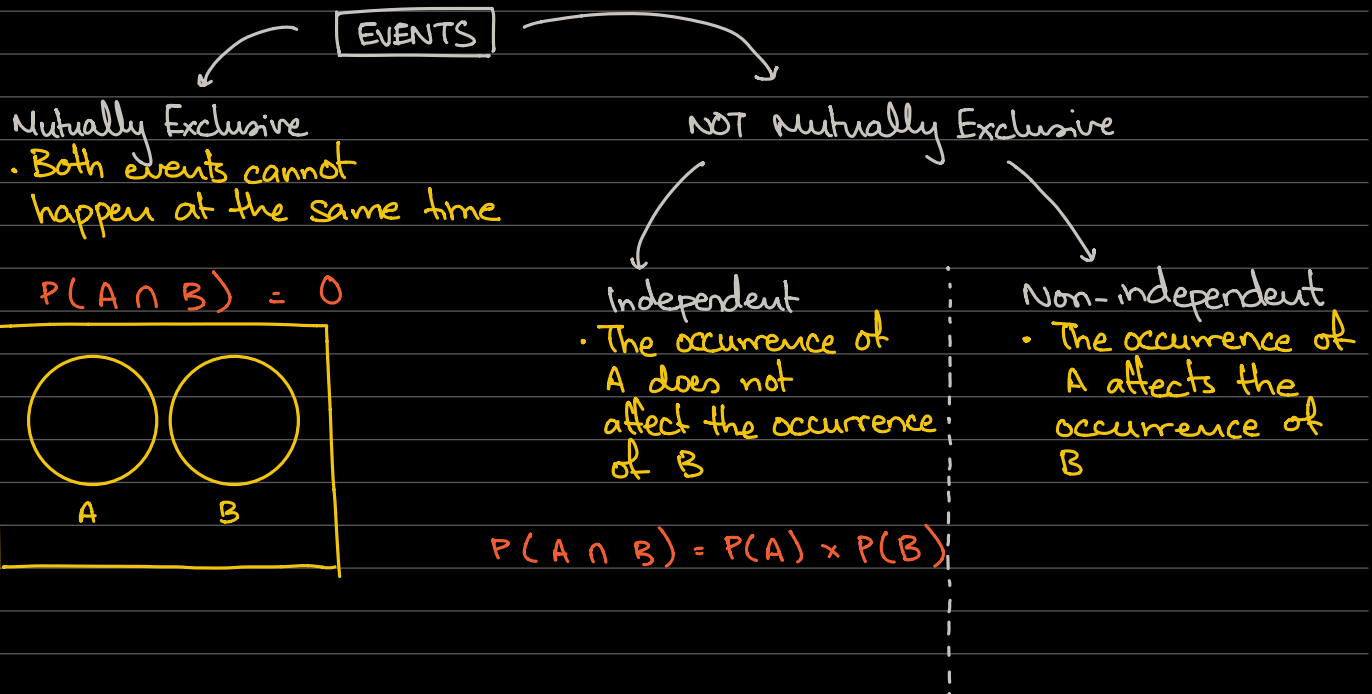 EVENTS
Mutually Exclusive
• Both events cannot
happen at the same time
P(A ∩ B) = 0
A
B
NOT Mutually Exclusive
Independent
• The occurrence of
A does not
affect the occurrence
of B
P(A ∩ B) = P(A) × P(B)
Non-independent
• The occurrence of
A affects the
occurrence of
B